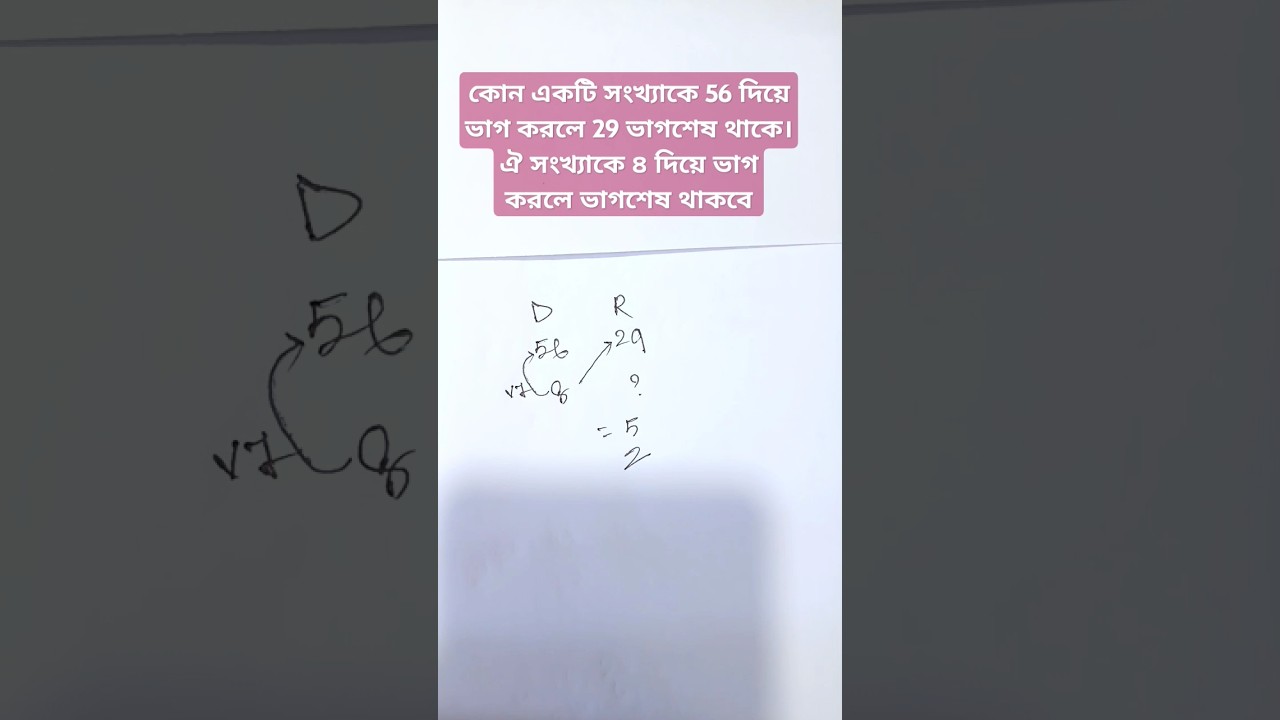 কোন একটি সংখ্যাকে 56 দিয়ে
ভাগ করলে 29 ভাগশেষ থাকে।
ঐ সংখ্যাকে ৪ দিয়ে ভাগ
করলে ভাগশেষ থাকবে
D R
56 29
8 ?
= 5
2
D
56
8